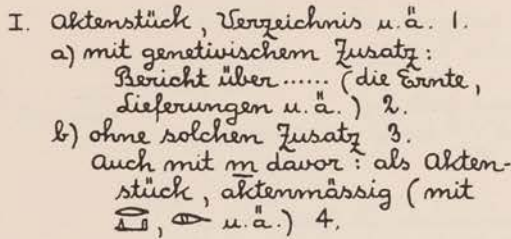 I. Aktenstück, Verzeichnis u.ä. 1.
a) mit genetivischem Zusatz:
Bericht über ...... (die Ernte,
Lieferungen u.ä.) 2.
b) ohne solchen Zusatz 3.
Auch mit m davor: als Akten-
stück, aktenmässig (mit
, u.ä.) 4.